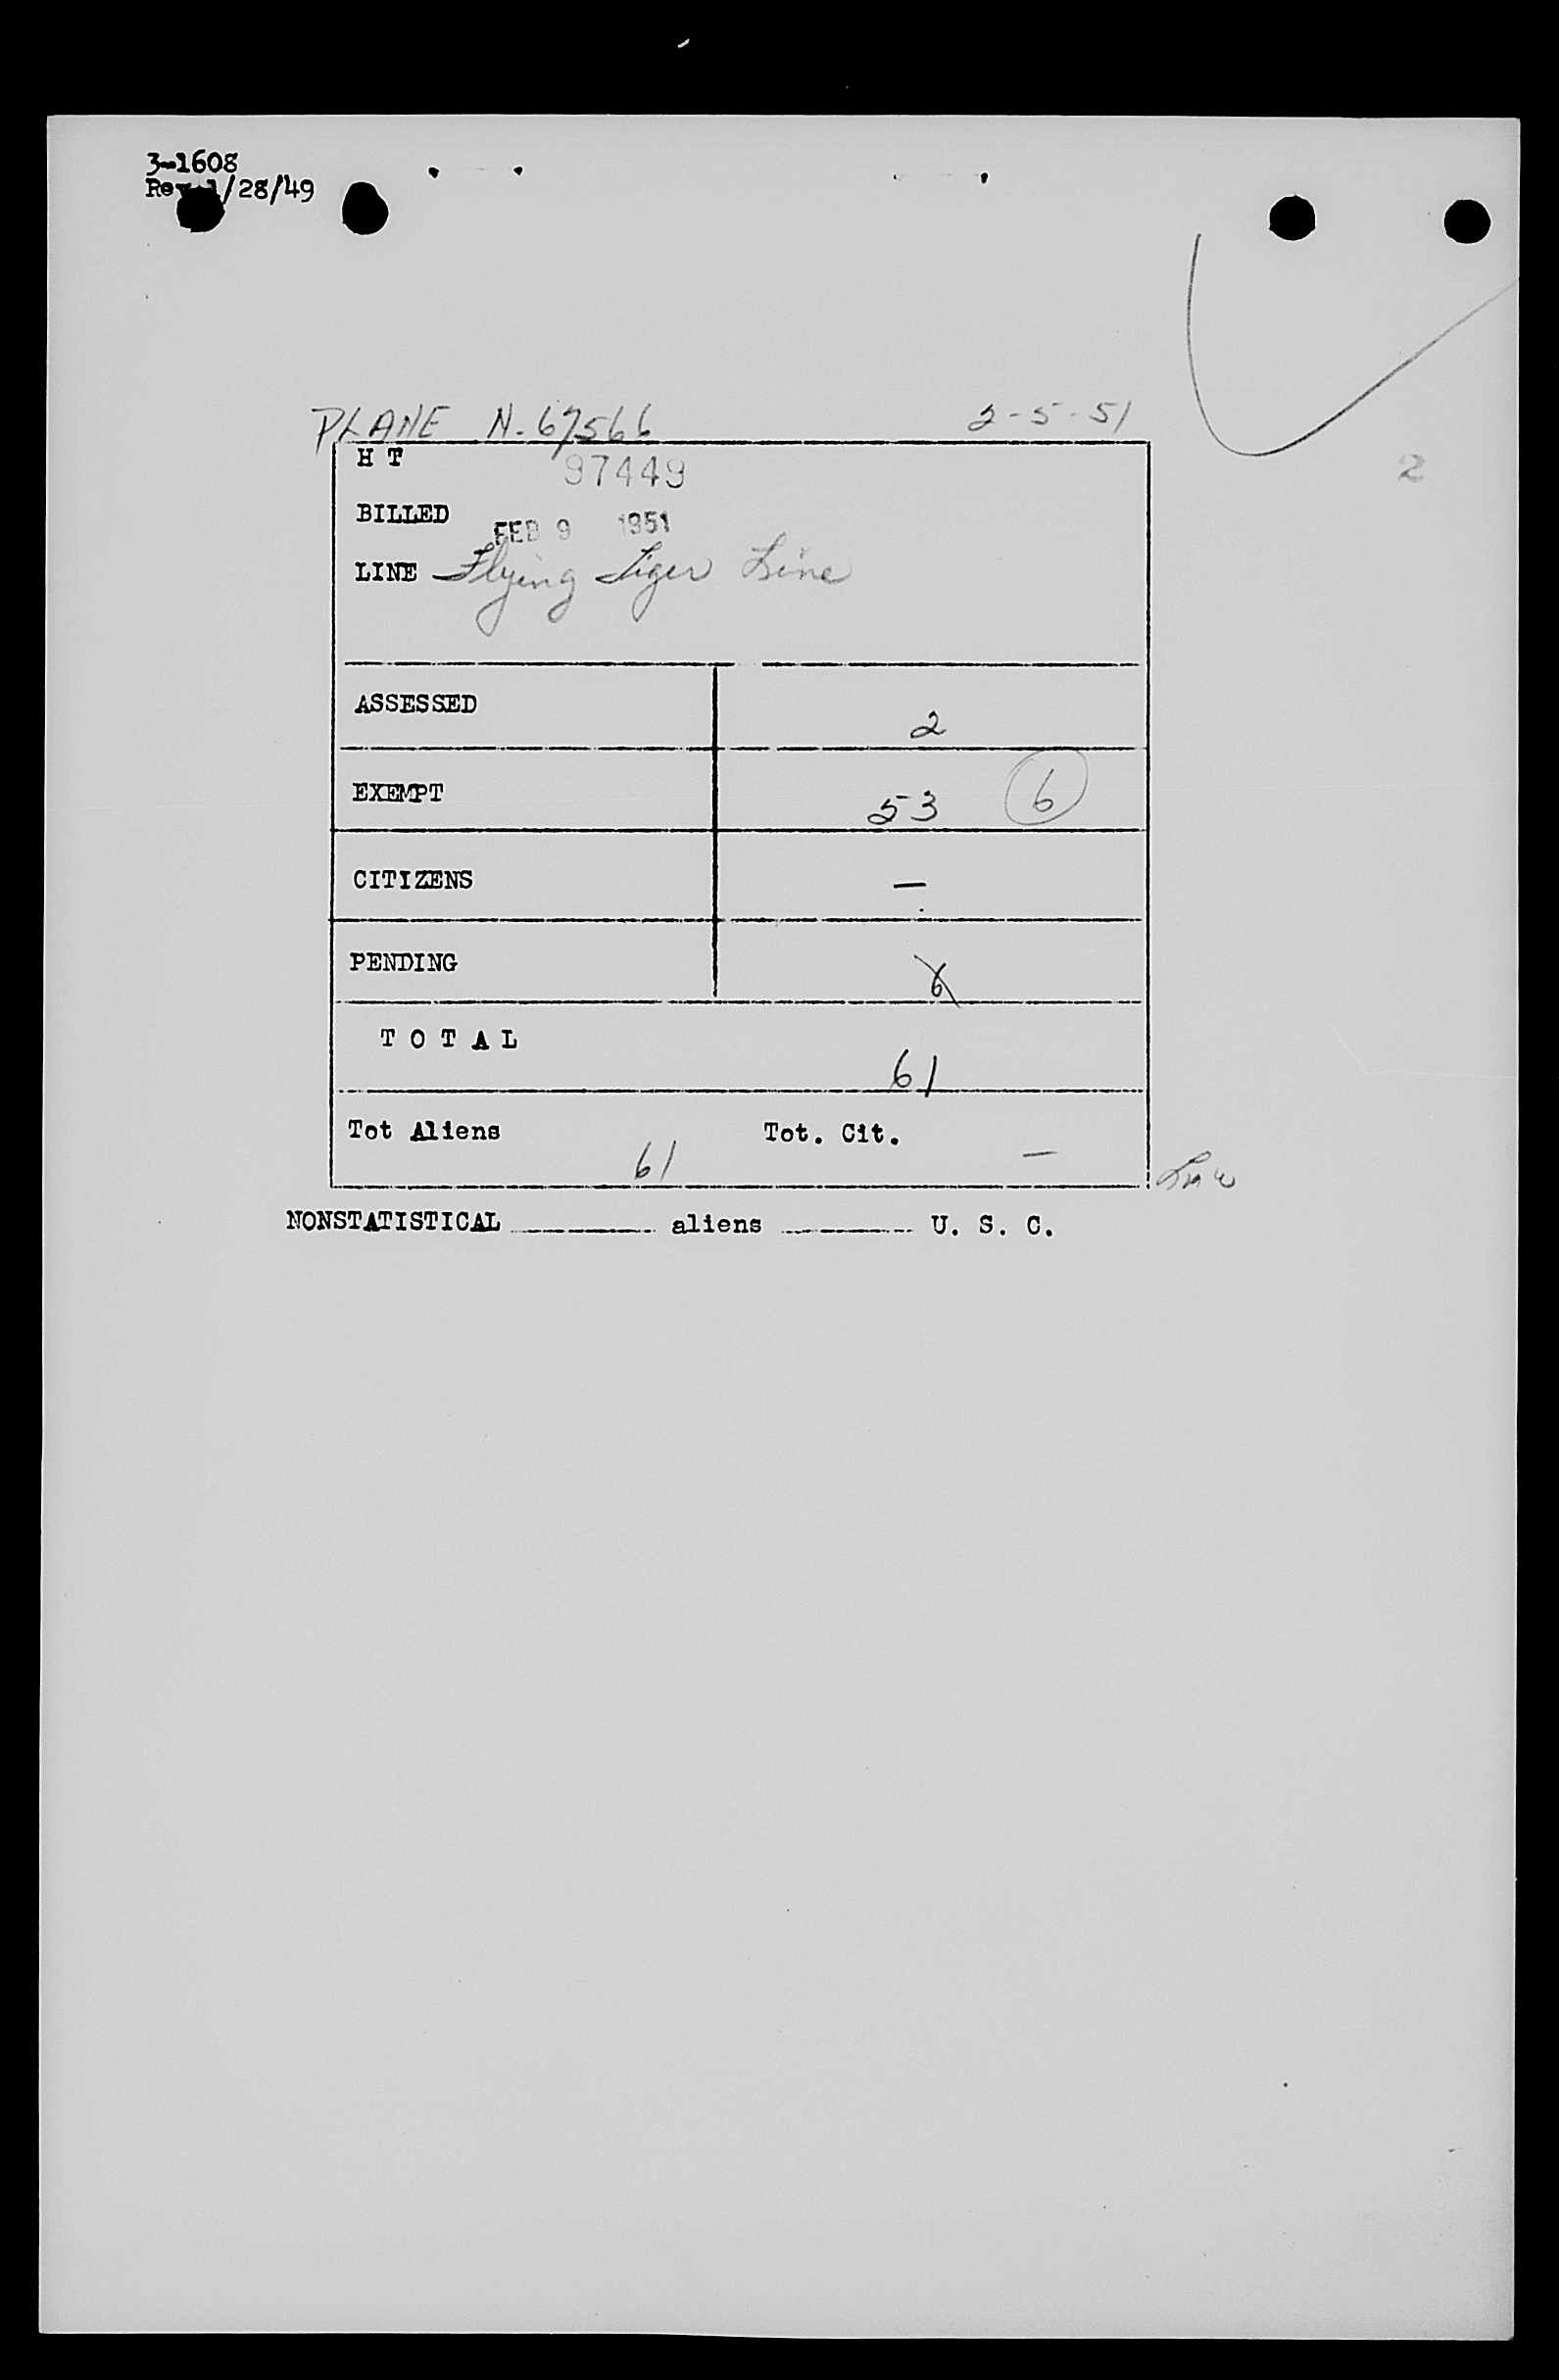 3-1608
Rev 1/28/49
PLANE N-67566 2-5-51
H T 97449
2
BILLED FEB 9 1951
LINE Flying Tiger Line
ASSESSED 2
EXEMPT 53 6
CITIZENS —
PENDING 6
T O T A L 61
Tot Aliens 61 Tot. Cit. —
NONSTATISTICAL ________ aliens ________ U. S. C.